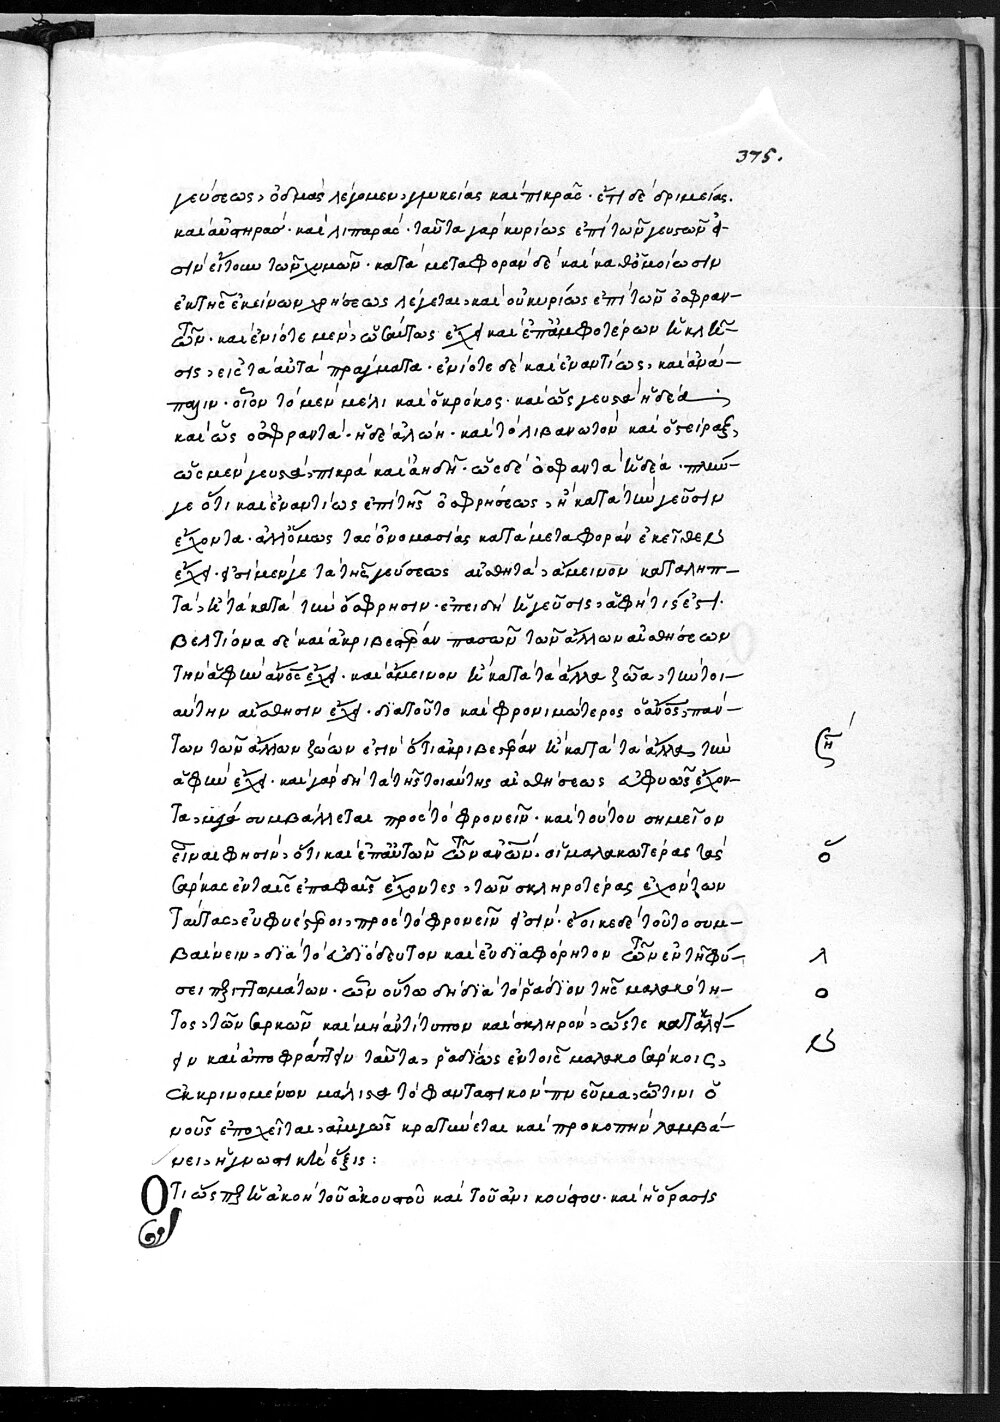 375.
γεύσεως, ὀδμὰς λέγομεν, γλυκείας καὶ πικρᾶς· ἔτι δὲ δριμείας.
καὶ αὐστηρὰς· καὶ λιπαρὰς· ταῦτα γὰρ κυρίως ἐπὶ τῶν γευστῶν εἰ-
σὶν εἴτουν τῶν χυμῶν· κατὰ μεταφορὰν δὲ καὶ καθ' ὁμοίωσιν
ἐκ τῆς ἐκείνων χρήσεως λέγεται, καὶ οὐ κυρίως ἐπὶ τῶν ὀσφραν-
τῶν· καὶ ἐνίοτε μὲν, ὡσαύτως ἔχει καὶ ἐπ' ἀμφοτέρων ἡ κλῆ-
σις, εἰς τὰ αὐτὰ πράγματα· ἐνίοτε δὲ καὶ ἐναντίως, καὶ ἀνά-
παλιν· οἷον τὸ μὲν μέλι καὶ ὁ κρόκος· καὶ ὡς γευστὰ ἡδέα
καὶ ὡς ὀσφραντά· ἡ δὲ ἀλώη· καὶ τὸ λιβανωτὸν καὶ ὁ στείραξ,
ὡς μὲν γευστὰ, πικρὰ καὶ ἀηδῆ· ὡς δὲ ὀσφραντὰ ἡδέα· πλήν
γε ὅτι καὶ ἐναντίως ἐπὶ τῆς ὀσφρήσεως, ἢ κατὰ τὴν γεῦσιν
ἔχοντα· ἀλλ' ὅμως τὰς ὀνομασίας κατὰ μεταφορὰν ἐκεῖθεν
ἔχει· εἰσὶ μέν γε τὰ τῆς γεύσεως αἰσθητὰ, ἄμεινον καταληπ-
τὰ, ἢ τὰ κατὰ τὴν ὄσφρησιν· ἐπειδὴ ἡ γεῦσις, ἁφή τίς ἐστι·
βελτίονα δὲ καὶ ἀκριβεστέραν πασῶν τῶν ἄλλων αἰσθήσεων
τὴν ἁφὴν ἄνος ἔχει· καὶ ἄμεινον ἢ κατὰ τὰ ἄλλα ζῶα, τὴν τοι-
αύτην αἴσθησιν ἔχει· διατοῦτο καὶ φρονιμώτερος ὁ ἄνος, πάν-
των τῶν ἄλλων ζώων ἐστὶν ὅτι ἀκριβεστέραν ἢ κατὰ τὰ ἄλλα τὴν
ἁφὴν ἔχει· καὶ γὰρ δὴ τὰ τῆς τοιαύτης αἰσθήσεως εὐφυῶς ἔχον-
τα, συμβάλλεται πρὸς τὸ φρονεῖν· καὶ τούτου σημεῖον
εἶναι φησὶν, ὅτι καὶ ἐπ' αὐτῶν τῶν ἀνῶν· οἱ μαλακωτέρας τὰς
σάρκας ἐν ταῖς ἐπαφαῖς ἔχοντες, τῶν σκληροτέρας ἐχόντων
ταύτας, εὐφυέστεροι, πρὸς τὸ φρονεῖν εἰσίν· ἔοικε δὲ τοῦτο συμ-
βαίνειν, διὰ τὸ εὐδιόδευτον καὶ εὐδιαφόρητον τῶν ἐν τῇ φύ-
σει περιττωμάτων· ὧν οὕτω δὴ διὰ τὸ ῥάδιον τῆς μαλακότη-
τος, τῶν σαρκῶν καὶ μὴ ἀντίτυπον καὶ σκληρὸν, ὥστε
καὶ ἀποφράττειν ταῦτα, ῥαδίως ἐν τοῖς μαλακοσάρκοις,
ἐκκρινομένων μάλιστα τὸ φανταστικὸν πνεῦμα, ᾧτινι ὁ
νοῦς ἐποχεῖται, κρατύνεται καὶ προκοπὴν λαμβά-
νει, ἡ γνωστικὴ ἕξις:
Ὅτι ὥσπερ ἡ ἀκοὴ τοῦ ἀκουστοῦ καὶ τοῦ ἀνηκούστου· καὶ ἡ ὅρασις